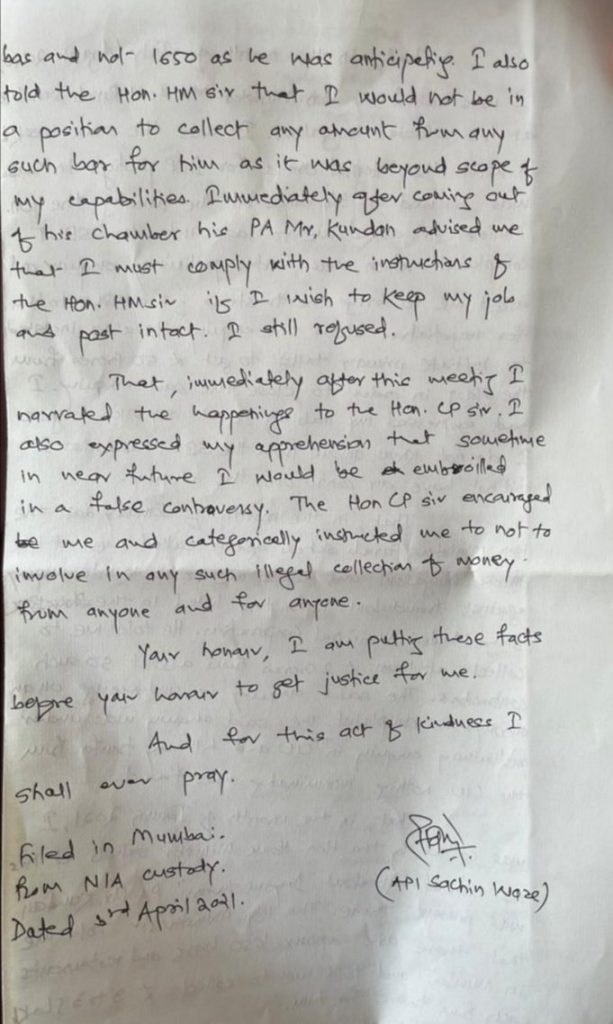 bas and not 1650 as he was anticipating. I also
told the Hon. HM sir that I would not be in
a position to collect any amount from any
such bar for him as it was beyond scope of
my capabilities. Immediately after coming out
of his chamber his PA Mr. Kundan advised me
that I must comply with the instructions of
the Hon. HM sir if I wish to keep my job
and post intact. I still refused.
That, immediately after this meeting I
narrated the happenings to the Hon. CP sir. I
also expressed my apprehension that sometime
in near future I would be embroilled
in a false controversy. The Hon CP sir encouraged
me and categorically instructed me to not to
involve in any such illegal collection of money
from anyone and for anyone.
Your honour, I am putting these facts
before your honour to get justice for me.
And for this act of kindness I
shall ever pray.
Filed in Mumbai.
from NIA custody.
Dated 3rd April 2021.
(API Sachin Waze)